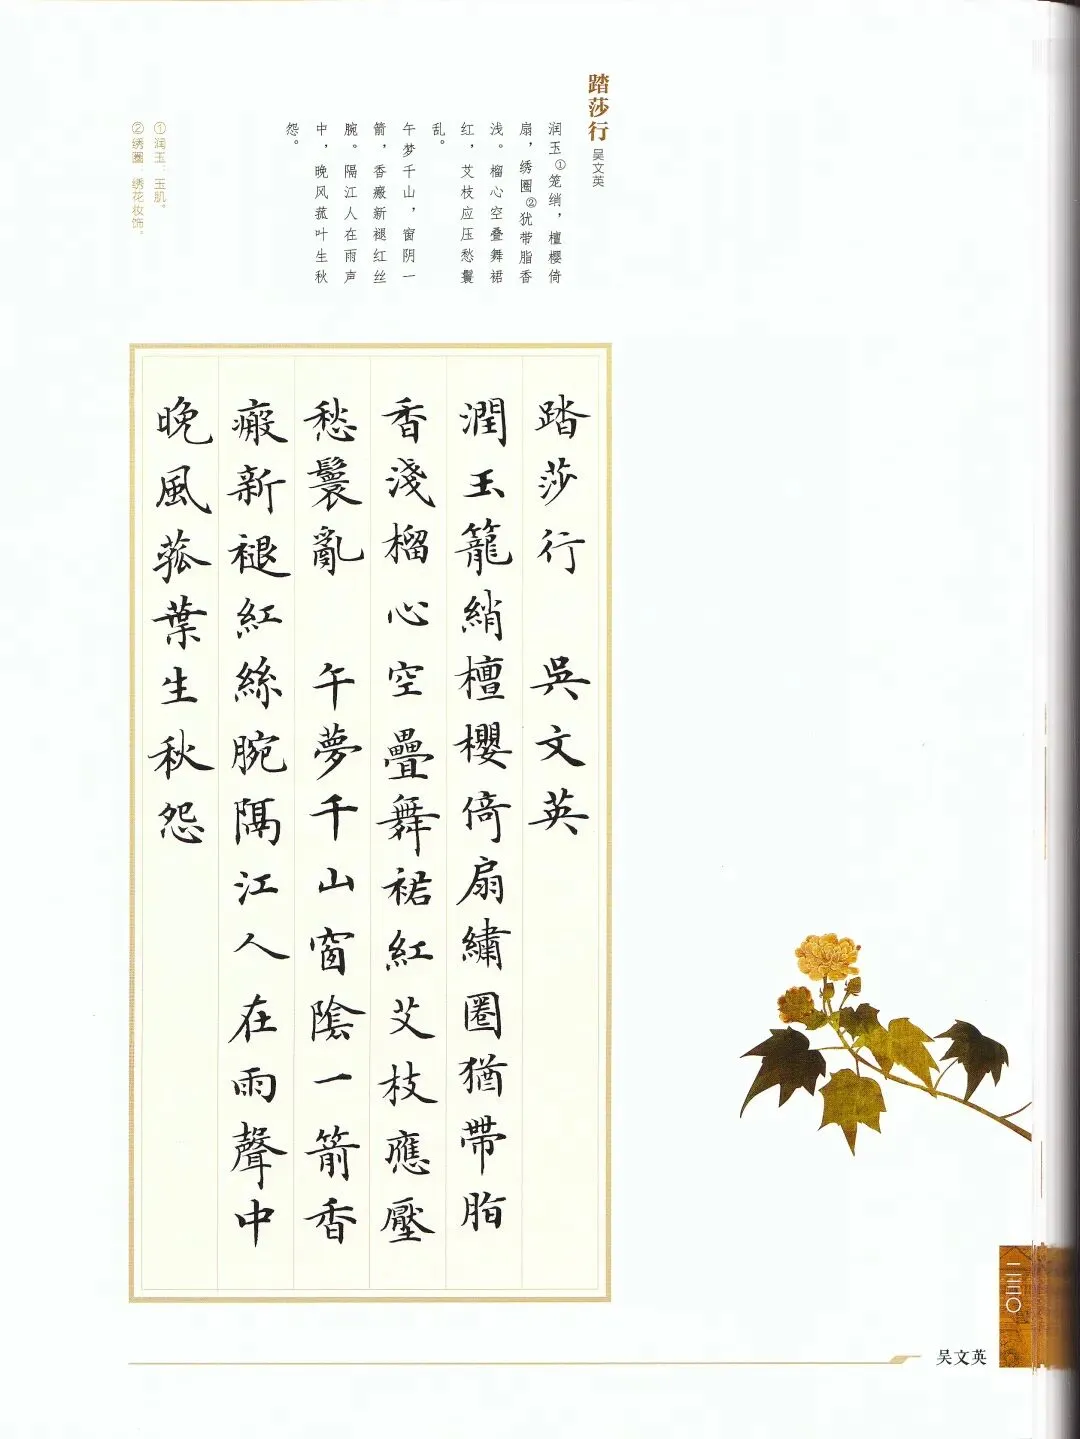 踏莎行
吴文英
润玉①笼绡，檀樱倚
扇，绣圈②犹带脂香
浅。榴心空叠舞裙
红，艾枝应压愁鬟
乱。
午梦千山，窗阴一
箭，香瘢新褪红丝
腕。隔江人在雨声
中，晚风菰叶生秋
怨。
①润玉：玉肌。
②绣圈：绣花妆饰。
踏莎行 吳文英
潤玉籠綃檀櫻倚扇繡圈猶帶脂
香淺榴心空疊舞裙紅艾枝應壓
愁鬟亂 午夢千山窗陰一箭香
瘢新褪紅絲腕隔江人在雨聲中
晚風菰葉生秋怨
吴文英